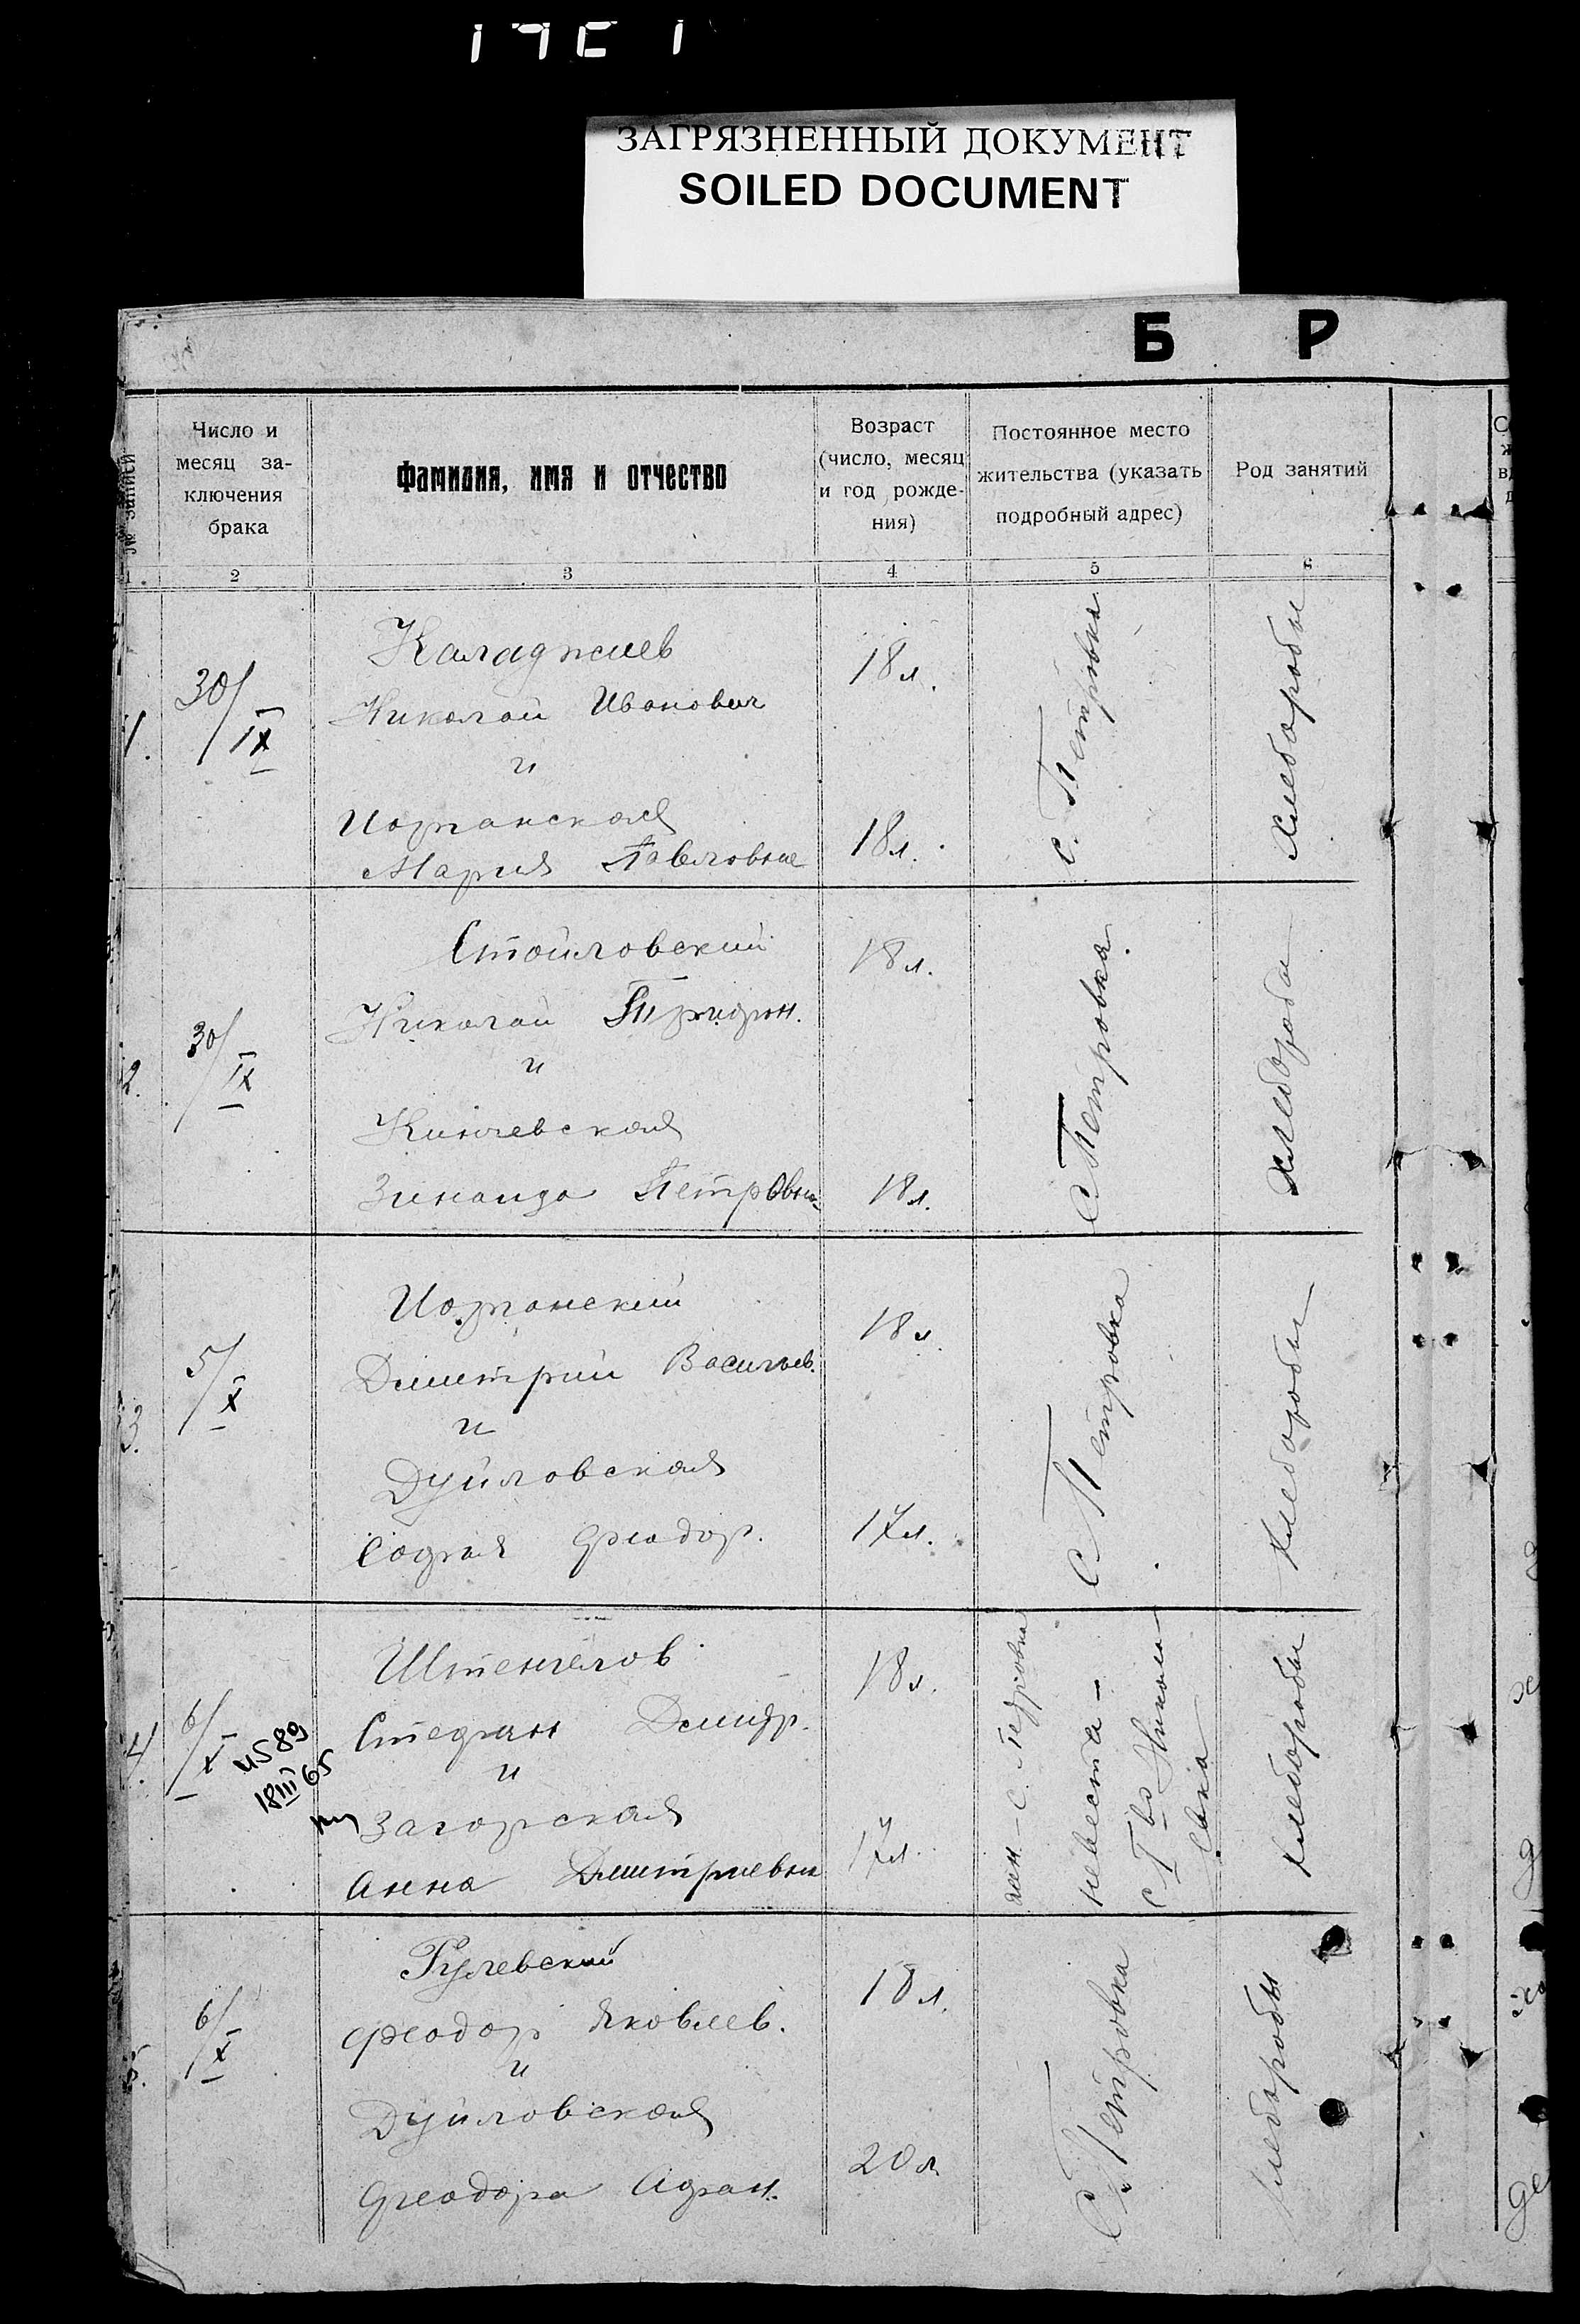 ЗАГРЯЗНЕННЫЙ ДОКУМЕНТ
SOILED DOCUMENT
Б Р
№ записи
Число и
месяц за-
ключения
брака
Фамилия, имя и отчество
Возраст
(число, месяц
и год рожде-
ния)
Постоянное место
жительства (указать
подробный адрес)
Род занятий
1 2 3 4 5 6
1.
30/IX
Каладжиев
Николай Иванович
и
Иорганская
Мария Павловна
18 л.
18 л.
с. Петровка
хлеборобы
2.
30/IX
Стойловский
Николай
и
Кинчевская
Зинаида Петровна
18 л.
18 л.
с Петровка
хлеборобы
3.
5/X
Иорганский
Дмитрий Васильев.
и
Дуйловская
София Феодор.
18 л
17 л.
с Петровка
хлеборобы
4.
6/X
4589
18 III 65
Штенгелов
Стефан Димитр.
и
Загорская
Анна Дмитриевна
18 л.
17 л.
с. Петровка
невеста -
хлеборобы
5.
6/X
Гулевский
Феодор Яковлев.
и
Дуйловская
Феодора Афан.
18 л.
20 л.
С. Петровка
хлеборобы